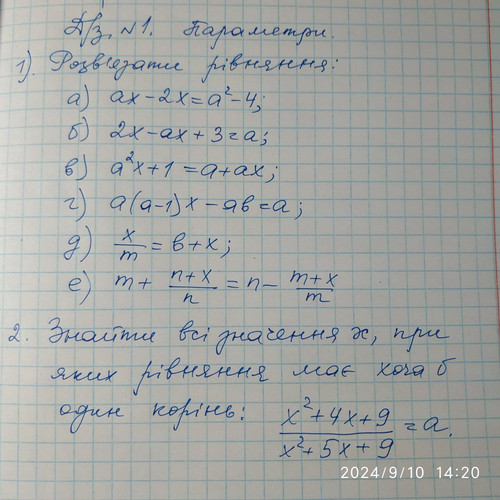 Д/з. №1. Параметри.
1). Розв'язати рівняння:
а) ax-2x=a²-4;
б) 2x-ax+3=a;
в) a²x+1=a+ax;
г) a(a-1)x-ab=a;
д) x/m=b+x;
е) m+(n+x)/n=n-(m+x)/m
2. Знайти всі значення x, при
яких рівняння має хоча б
один корінь: (x²+4x+9)/(x²+5x+9)=a.
2024/9/10 14:20